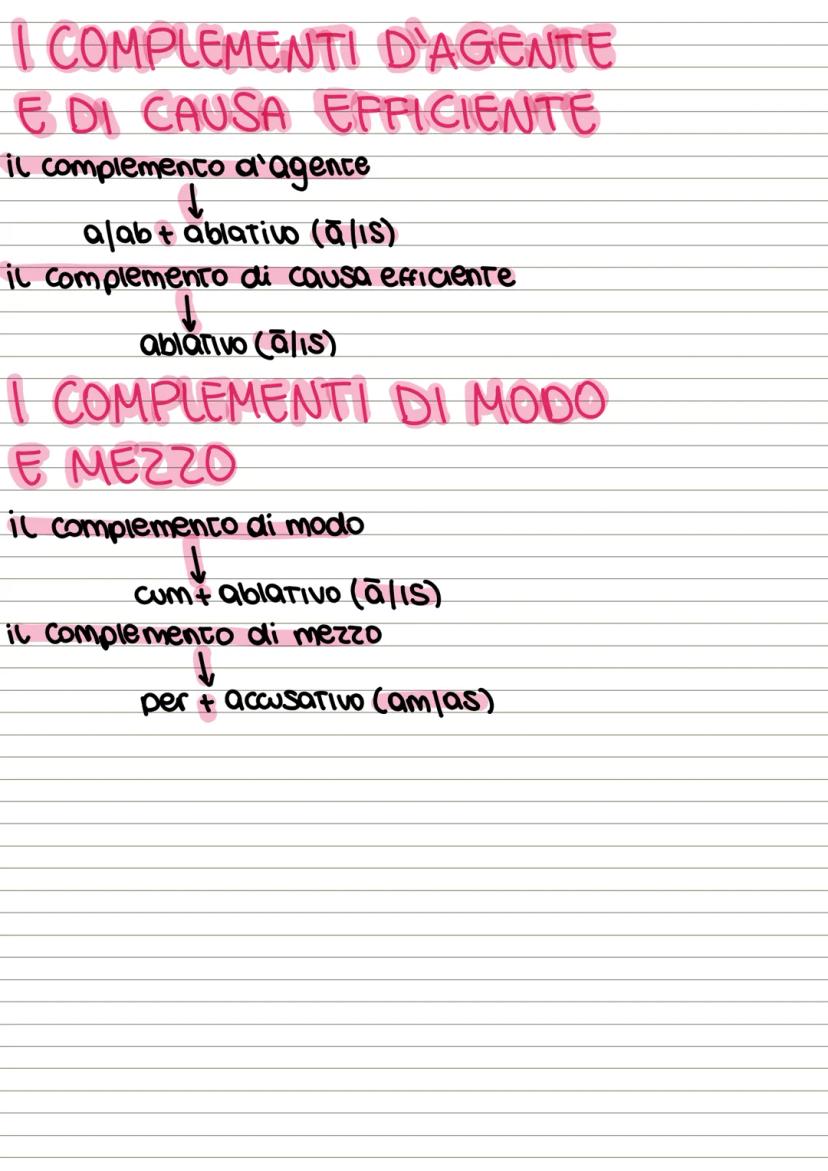 I COMPLEMENTI D'AGENTE
E DI CAUSA EFFICIENTE
il complemento d'agente
↓
a/ab + ablativo (ā/is)
il complemento di causa efficiente
↓
ablativo (ā/is)
I COMPLEMENTI DI MODO
E MEZZO
il complemento di modo
↓
cum + ablativo (ā/is)
il complemento di mezzo
↓
per + accusativo (am/as)